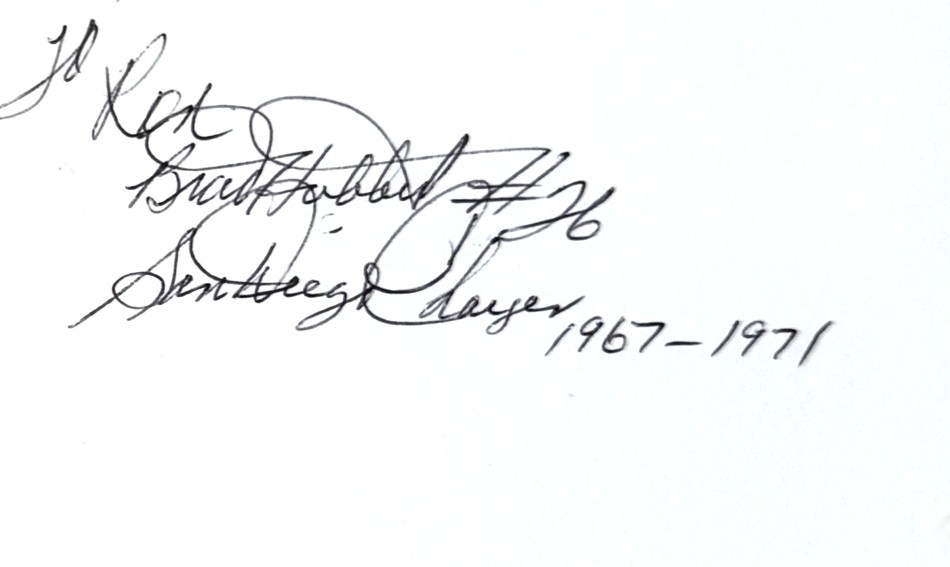 To Ron
Brad Hubbert #26
San Diego Charger
1967-1971